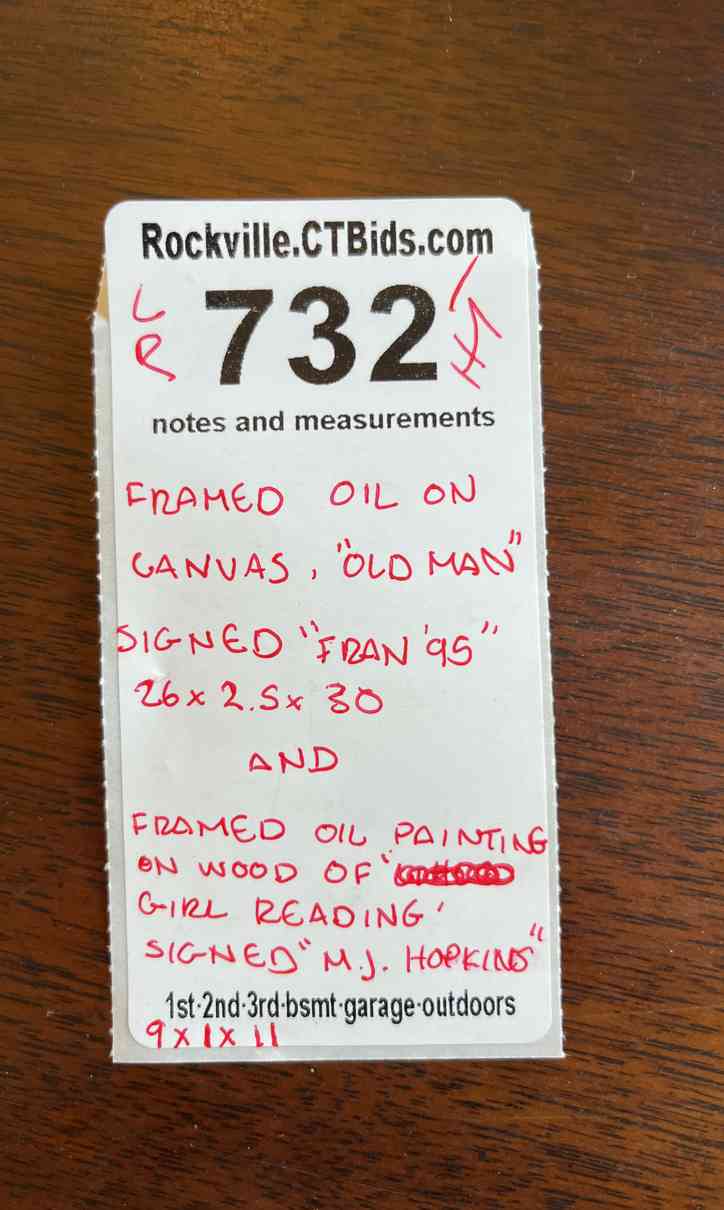 Rockville.CTBids.com
L
R
732
notes and measurements
FRAMED OIL ON
CANVAS, "OLD MAN"
SIGNED "FRAN '95"
26 x 2.5 x 30
AND
FRAMED OIL PAINTING
ON WOOD OF '
GIRL READING'
SIGNED "M.J. HOPKINS"
1st·2nd·3rd·bsmt·garage·outdoors
9 x 1 x 11